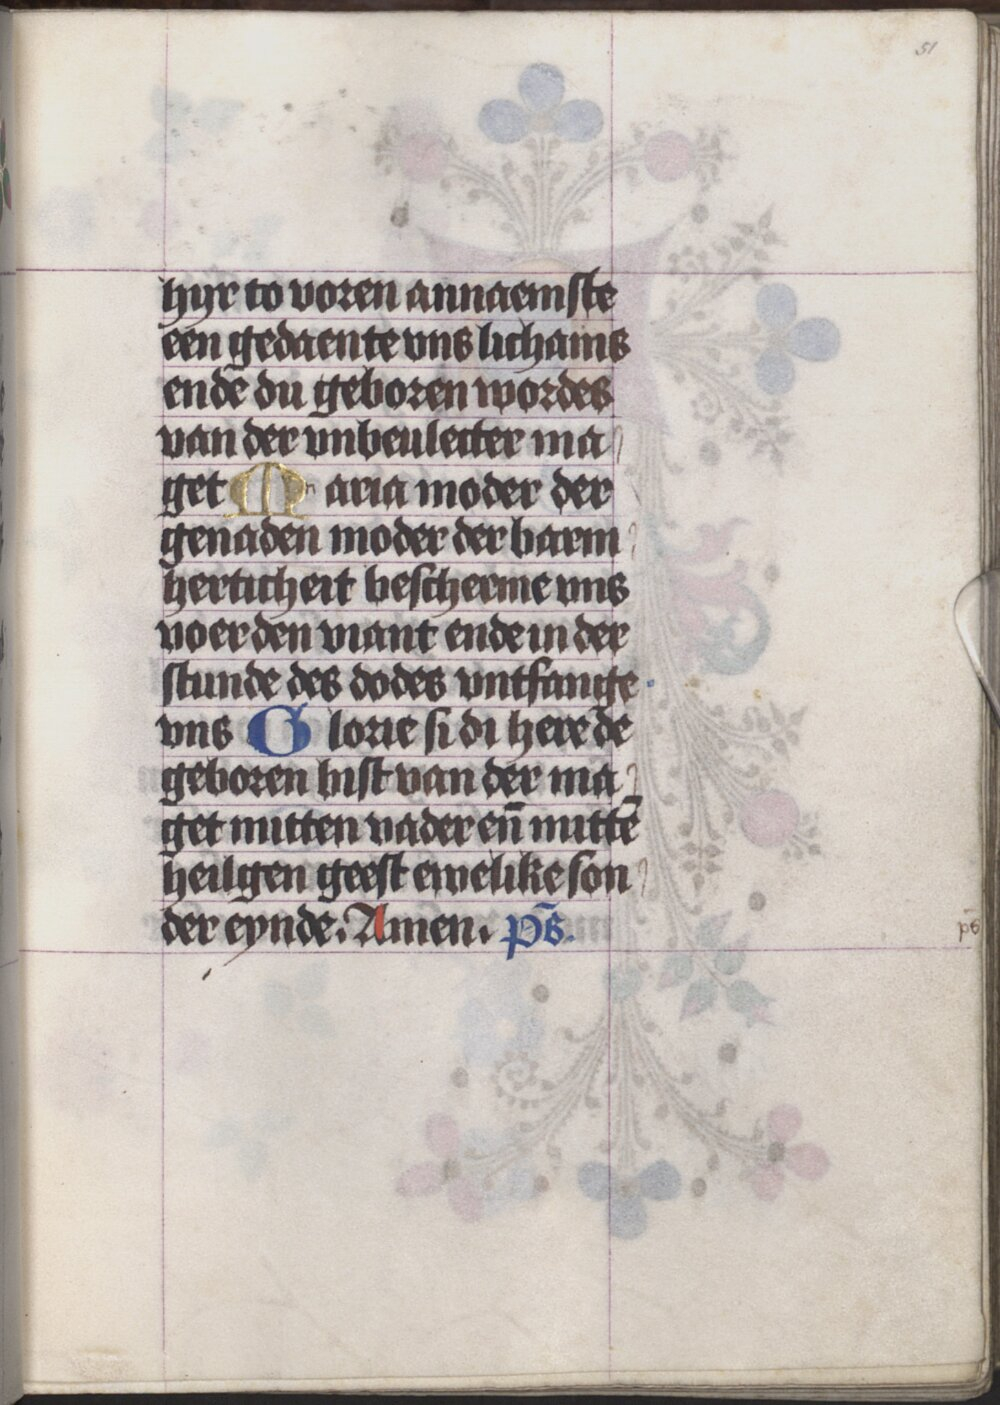 51
hyr to voren annaemste
een gedaente vns lichams
ende du geboren wordes
van der vnbeulecter ma
get Maria moder der
genaden moder der barm
herticheit bescherme vns
voer den viant ende in der
stunde des dodes vntfange
vns Glorie si di here de
geboren bist van der ma
get mitten vader eñ mittē
heilgen geest ewelike son
der eynde. Amen. ps̄.
ps̄